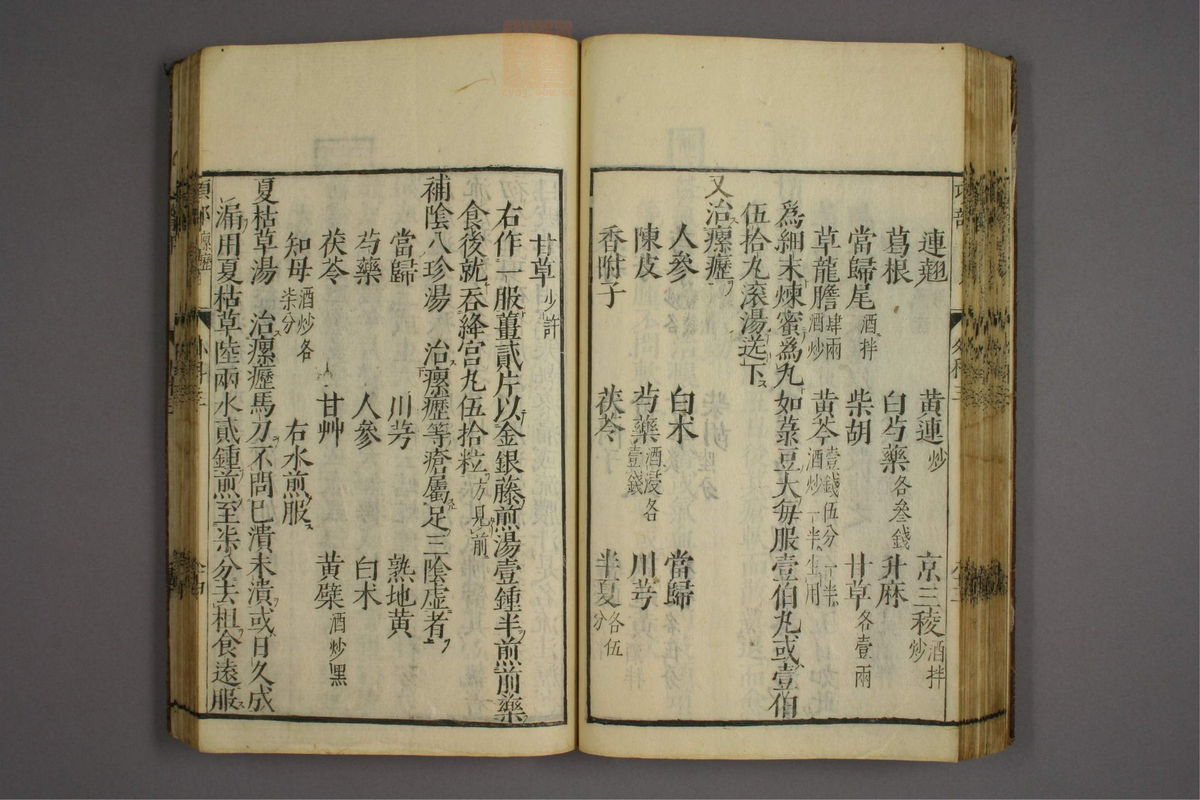 連翹 黃連炒 京三稜酒拌炒
葛根 白芍藥各叁錢 升麻
當歸尾酒拌 柴胡 甘草各壹兩
草龍膽肆兩酒炒 黃芩壹錢伍分一半酒炒一半生用
爲細末煉蜜爲丸如菉豆大每服壹伯丸或壹伯
伍拾丸滾湯送下
又治瘰癧
人參 白朮 當歸
陳皮 芍藥酒浸各壹錢 川芎
香附子 茯苓 半夏各伍分
甘草少許
右作一服薑貳片以金銀藤煎湯壹鍾半煎前藥
食後就吞絳宮丸伍拾粒方見前
補陰八珍湯 治瘰癧等瘡屬足三陰虛者
當歸 川芎 熟地黃
芍藥 人參 白朮
茯苓 甘艸 黃檗酒炒黑
知母酒炒各柒分 右水煎服
夏枯草湯 治瘰癧馬刀不問已潰未潰或日久成
漏用夏枯草陸兩水貳鍾煎至柒分去柤食遠服